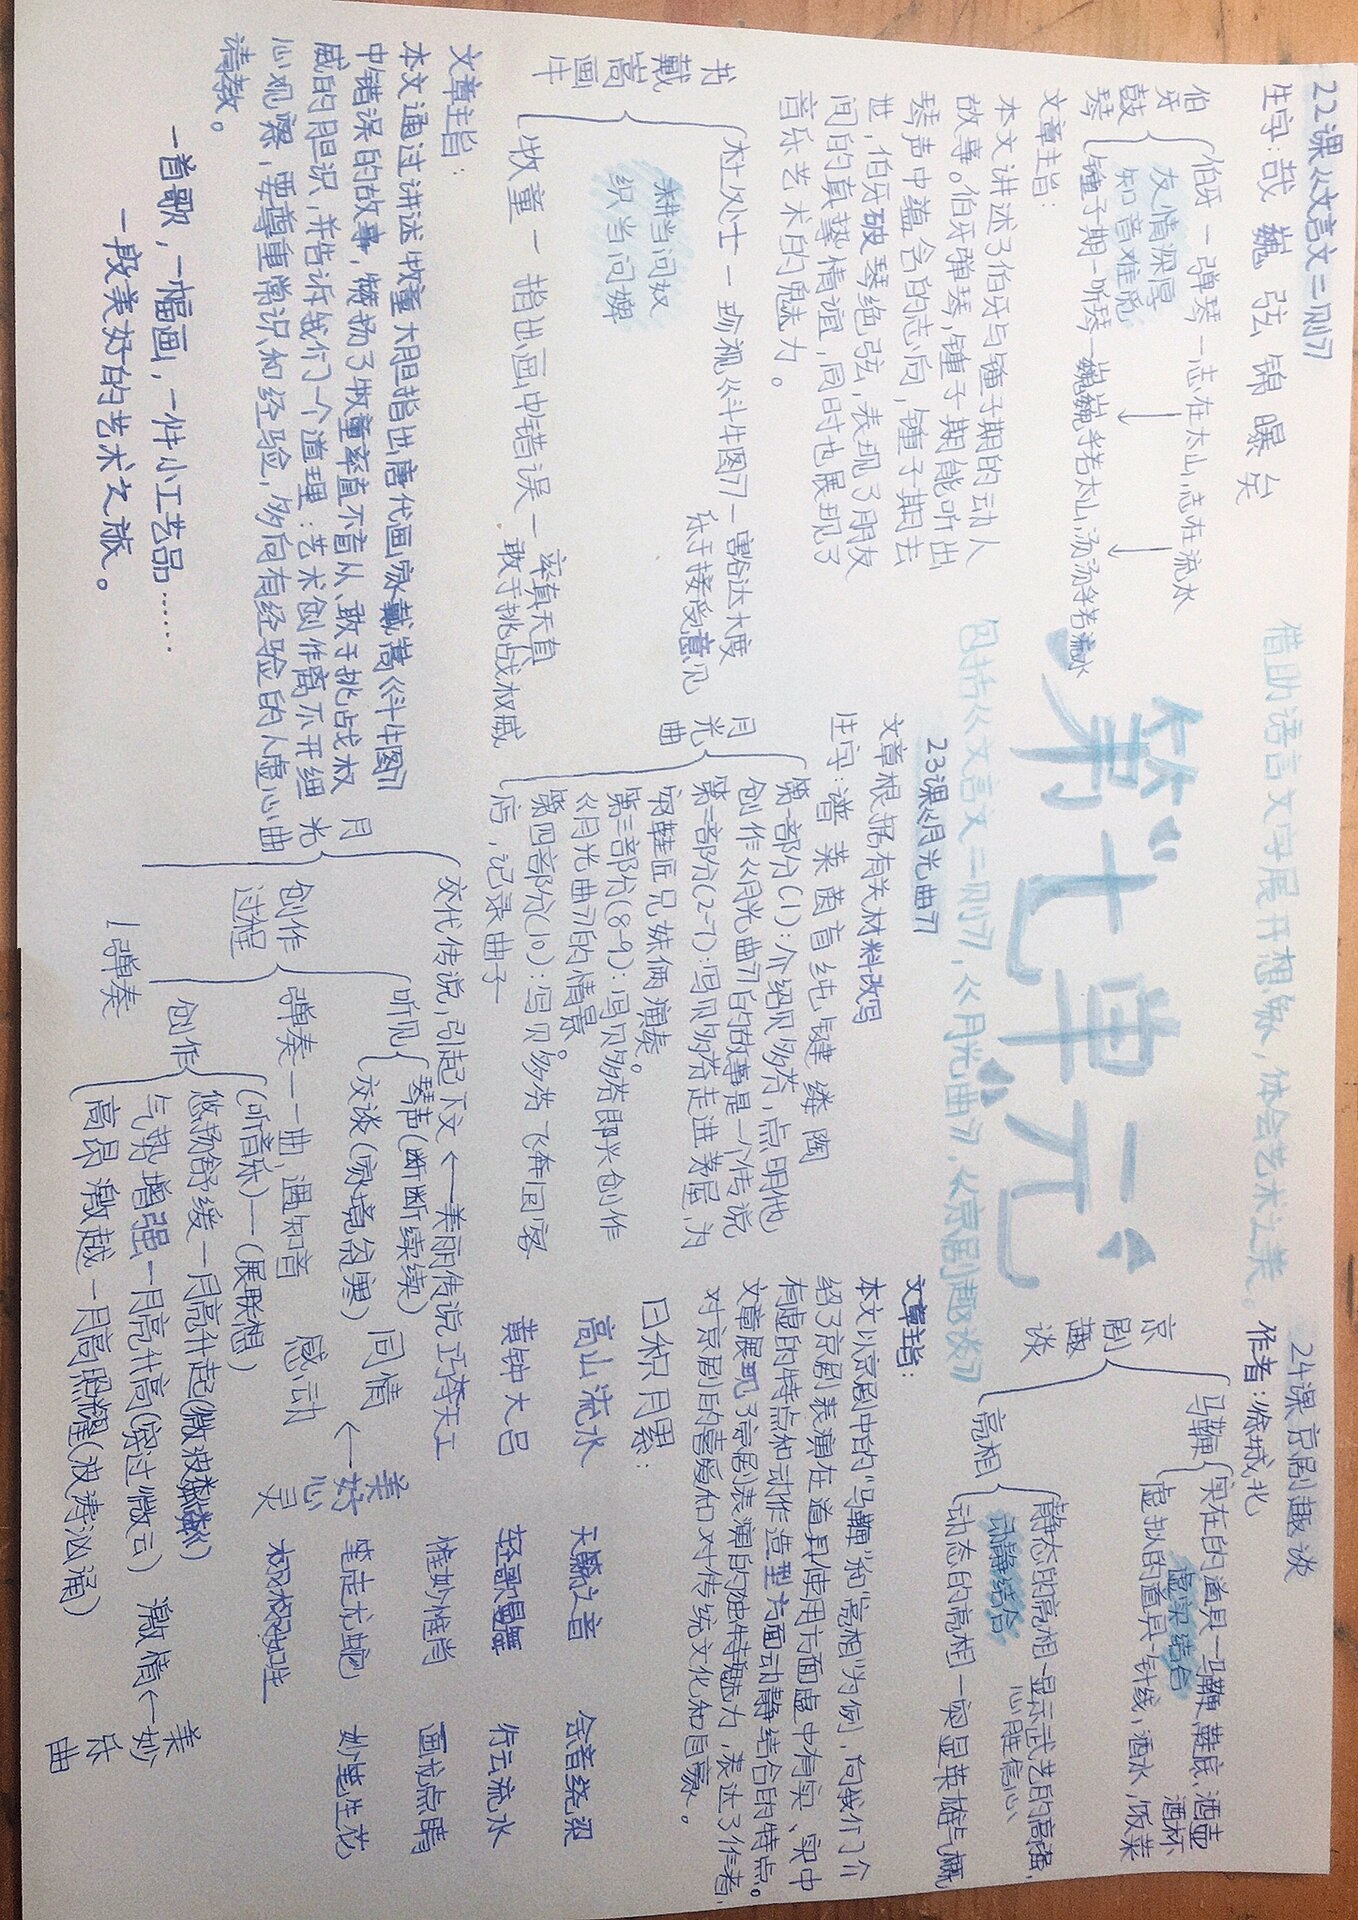 借助语言文字展开想象，体会艺术之美。
第七单元
包括《文言文二则》，《月光曲》，《京剧趣谈》
22课《文言文二则》
生字：哉 巍 弦 锦 曝 矣
伯牙鼓琴
伯牙—弹琴—志在太山，志在流水
友情深厚
知音难觅
锺子期—听琴—巍巍乎若太山，汤汤乎若流水
文章主旨：
本文讲述了伯牙与锺子期的动人
故事。伯牙弹琴，锺子期能听出
琴声中蕴含的志向，锺子期去
世，伯牙破琴绝弦，表现了朋友
间的真挚情谊，同时也展现了
音乐艺术的魅力。
书戴嵩画牛
杜处士—珍视《斗牛图》—豁达大度
乐于接受意见
耕当问奴
织当问婢
牧童—指出画中错误—率真天真
敢于挑战权威
文章主旨：
本文通过讲述牧童大胆指出唐代画家戴嵩《斗牛图》
中错误的故事，赞扬了牧童率直不盲从、敢于挑战权
威的胆识，并告诉我们一个道理：艺术创作离不开细
心观察，要尊重常识和经验，多向有经验的人虚心
请教。
一首歌，一幅画，一件小工艺品……
一段美好的艺术之旅。
23课《月光曲》
文章根据有关材料改写
生字：谱 莱 茵 盲 纯 键 缕 陶
月光曲
第一部分(1)：介绍贝多芬，点明他
创作《月光曲》的故事是一个传说
第二部分(2-7)：写贝多芬走进茅屋，为
穷鞋匠兄妹俩演奏。
第三部分(8-9)：写贝多芬即兴创作
《月光曲》的情景。
第四部分(10)：写贝多芬飞奔回客
店，记录曲子
月光曲
交代传说，引起下文←美丽传说
创作过程
听见
琴声(断断续续)
交谈(家境贫寒)
同情
弹奏一曲，遇知音
感动
←美好心灵
创作
(听音乐)—(展联想)
弹奏
悠扬舒缓—月亮升起(微波粼粼)
气势增强—月亮升高(穿过微云)
高昂激越—月高照耀(波涛汹涌)
激情←美妙乐曲
24课京剧趣谈
作者：徐城北
京剧趣谈
马鞭
实在的道具—马鞭，鞋底，酒壶
酒杯
虚实结合
虚拟的道具—针线，酒水，饭菜
亮相
静态的亮相—显示武艺的高强，
心胜信心
动静结合
动态的亮相—突显英雄气概
文章主旨：
本文以京剧中的“马鞭”和“亮相”为例，向我们介
绍了京剧表演在道具使用方面虚中有实、实中
有虚的特点和动作造型方面动静结合的特点。
文章展现了京剧表演的独特魅力，表达了作者，
对京剧的喜爱和对传统文化和自豪。
日积月累：
高山流水 天籁之音 余音绕梁
黄钟大吕 轻歌曼舞 行云流水
巧夺天工 惟妙惟肖 画龙点睛
笔走龙蛇 妙笔生花
栩栩如生